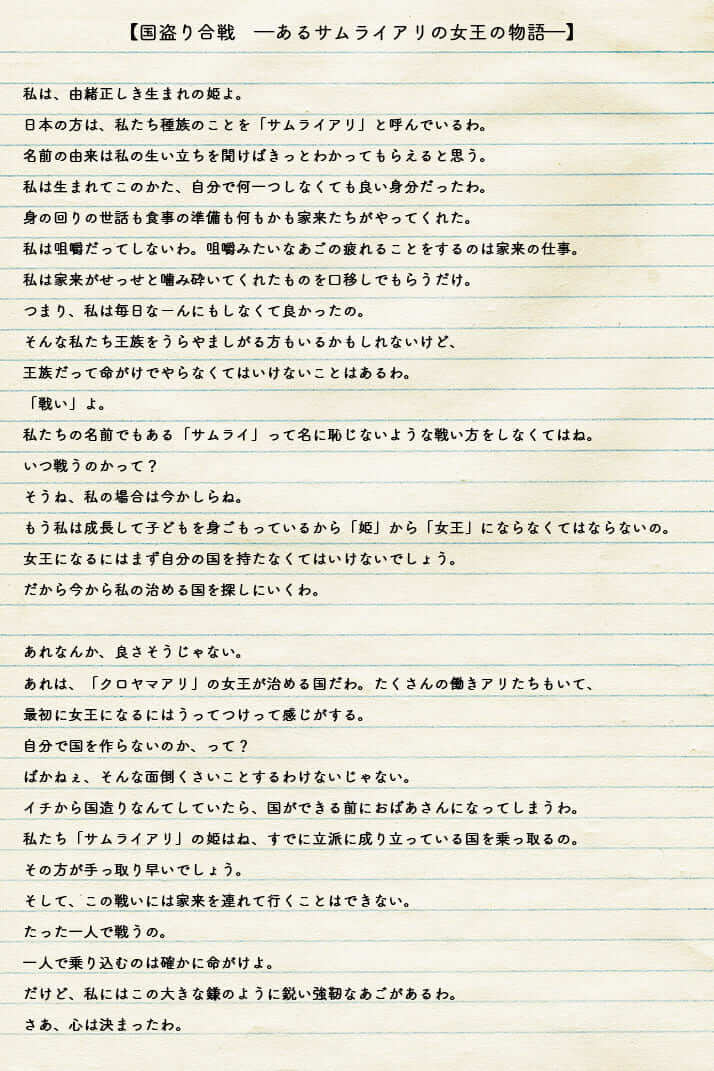 【国盗り合戦　―あるサムライアリの女王の物語―】
私は、由緒正しき生まれの姫よ。
日本の方は、私たち種族のことを「サムライアリ」と呼んでいるわ。
名前の由来は私の生い立ちを聞けばきっとわかってもらえると思う。
私は生まれてこのかた、自分で何一つしなくても良い身分だったわ。
身の回りの世話も食事の準備も何もかも家来たちがやってくれた。
私は咀嚼だってしないわ。咀嚼みたいなあごの疲れることをするのは家来の仕事。
私は家来がせっせと噛み砕いてくれたものを口移しでもらうだけ。
つまり、私は毎日なーんにもしなくて良かったの。
そんな私たち王族をうらやましがる方もいるかもしれないけど、
王族だって命がけでやらなくてはいけないことはあるわ。
「戦い」よ。
私たちの名前でもある「サムライ」って名に恥じないような戦い方をしなくてはね。
いつ戦うのかって？
そうね、私の場合は今かしらね。
もう私は成長して子どもを身ごもっているから「姫」から「女王」にならなくてはならないの。
女王になるにはまず自分の国を持たなくてはいけないでしょう。
だから今から私の治める国を探しにいくわ。
あれなんか、良さそうじゃない。
あれは、「クロヤマアリ」の女王が治める国だわ。たくさんの働きアリたちもいて、
最初に女王になるにはうってつけって感じがする。
自分で国を作らないのか、って？
ばかねぇ、そんな面倒くさいことするわけないじゃない。
イチから国造りなんてしていたら、国ができる前におばあさんになってしまうわ。
私たち「サムライアリ」の姫はね、すでに立派に成り立っている国を乗っ取るの。
その方が手っ取り早いでしょう。
そして、この戦いには家来を連れて行くことはできない。
たった一人で戦うの。
一人で乗り込むのは確かに命がけよ。
だけど、私にはこの大きな鎌のように鋭い強靭なあごがあるわ。
さあ、心は決まったわ。